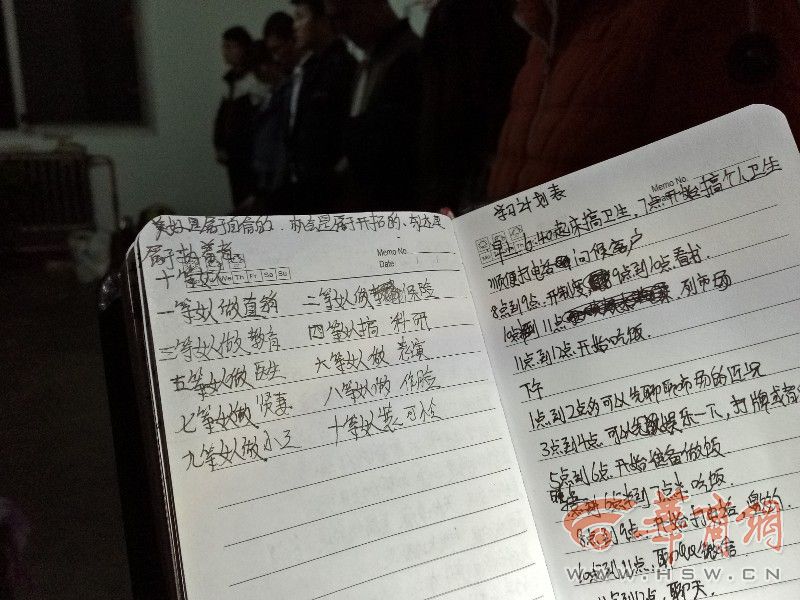 美好是属于自信的，机会是属于开拓的，奇迹是
属于执著者
Memo No.
Date
We Th Fr Sa Su
十等女人
一等女人做直销 二等女人做保险
三等女人做教育 四等女人搞科研
五等女人做医生 六等女人做表演
七等女人做贤妻 八等女人做
九等女人做小三 十等女人装可怜
Memo No.
学习计划表
早上6:40起床搞卫生，7点开始搞个人卫生
顺便打电话问候客户
8点到9点. 开制度 9点到10点.看书
10点到11点 列市场
11点到12点开始吃饭.
下午
1点到2点多可以先聊聊市场的近况
3点到4点.可以先娱乐一下，打牌或
5点到6点.开始准备做饭
6点到7点半吃饭
8点到9点.开始打电话，邀约.
10点到11点.聊QQ微信
11点到12点.聊天.
华商网
WWW.HSW.CN